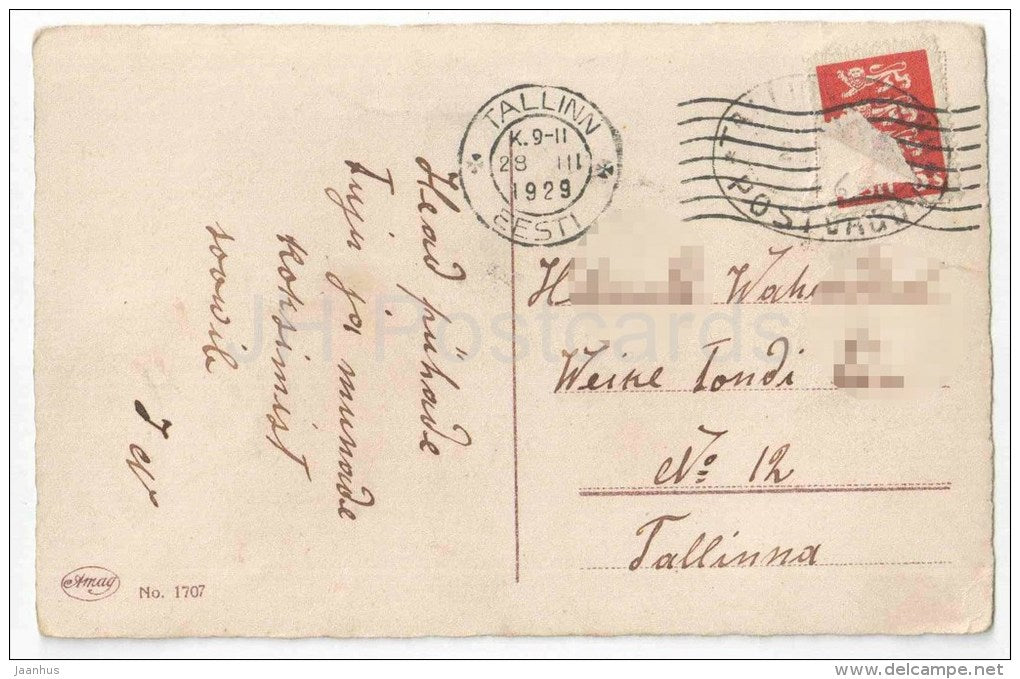 TALLINN
K. 9-11
28 III
1929
EESTI
POSTVAGUN
Head pühade
tuju ja munade
koksimist
soovib
Weike Tondi
No 12
Tallinna
Amag
No. 1707
JH Postcards
jaanhus
www.delcampe.net